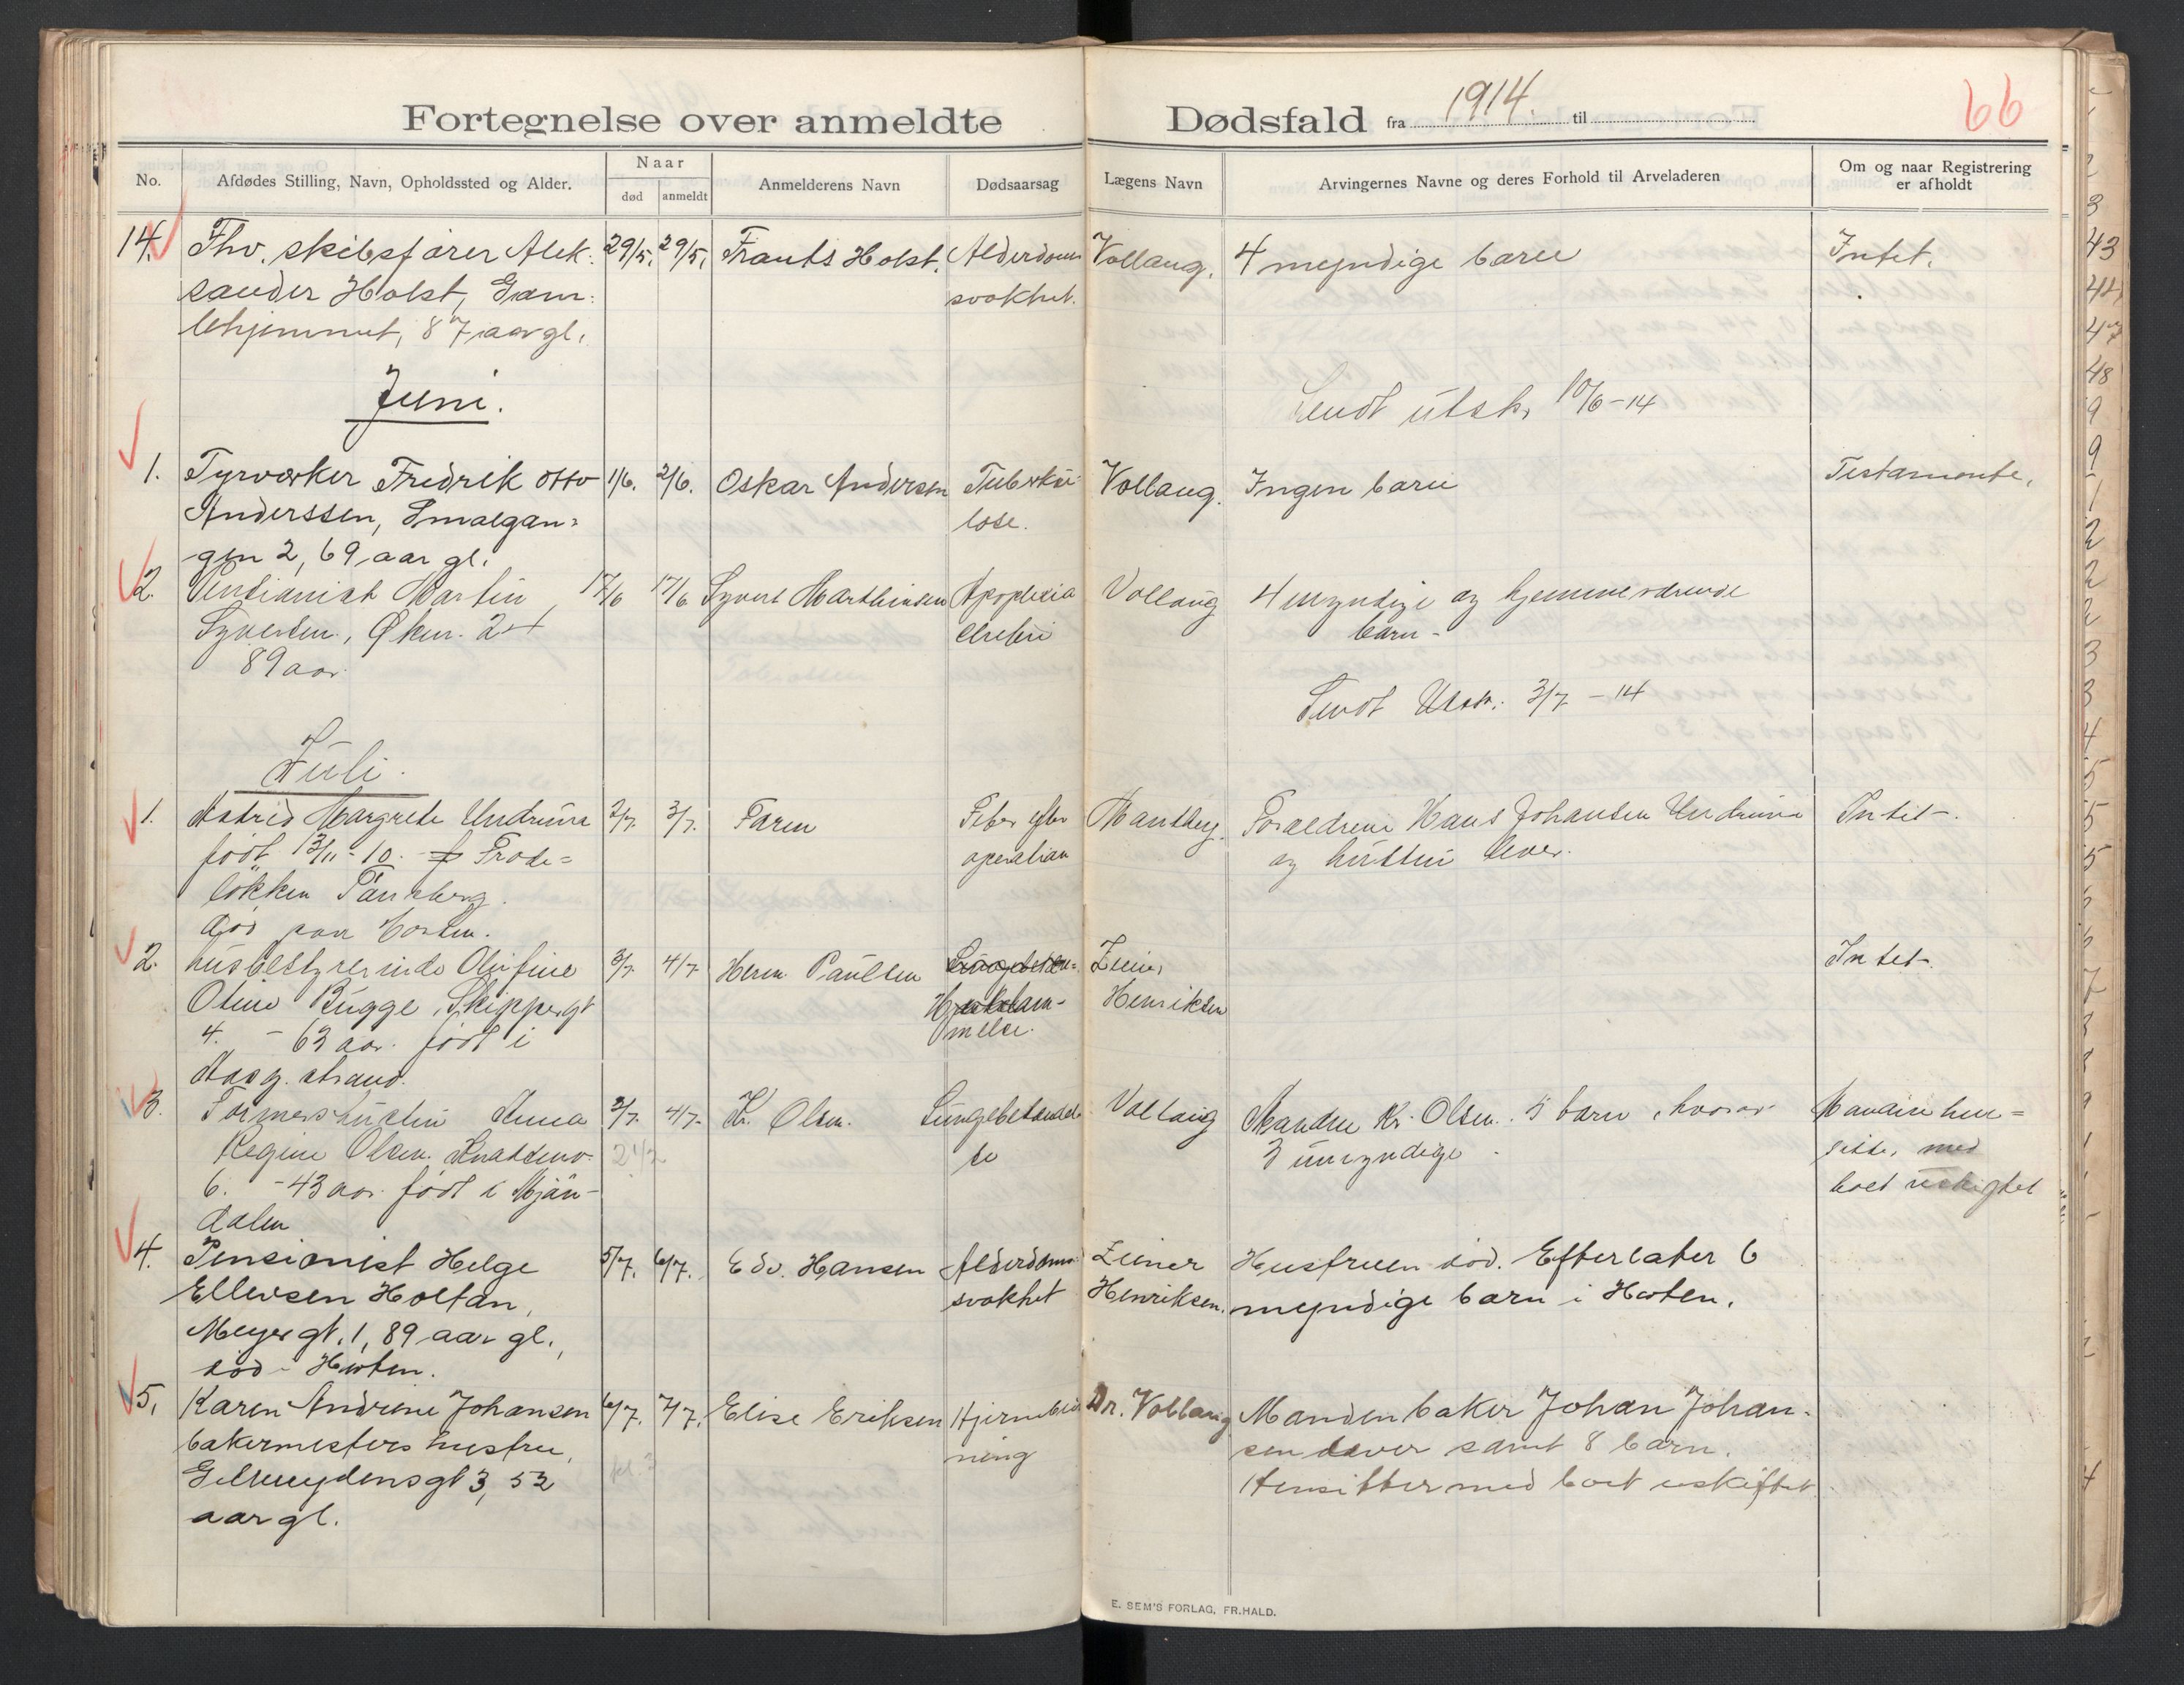 Fortegnelse over anmeldte Dødsfald fra 1914. til
66
No.
Afdødes Stilling, Navn, Opholdssted og Alder.
Naar
død
anmeldt
Anmelderens Navn
Dødsaarsag
Lægens Navn
Arvingernes Navne og deres Forhold til Arveladeren
Om og naar Registrering
er afholdt
14. Fhv. skibsfører Alek: 29/5. 29/5. Frants Holst. Alderdoms Vollaug. 4 myndige barn Intet.
sander Holst, Gam: svakhet.
lehjemmet, 87 aar gl.
Juni.
Sendt utsk. 10/6-14
1. Tyrværker Fredrik Otto 1/6. 2/6. Oskar Andersen Tuberku- Vollaug. Ingen barn Testamente.
Anderssen, Smalgan: lose.
gen 2, 69 aar gl.
2. Pensionist Martin 17/6 17/6 Syvert Marthinsen Apoplexia Vollaug 4 myndige og hjemmeværende
Syversen, Øken. 24 cerebri barn -
89 aar.
Sendt Utsk. 3/7 - 14
Juli.
1. Astrid Margrete Undrum 2/7. 3/7. Faren Feber efter Manthey. Forældrene Hans Johansen Undrum Intet-.
født 13/11-10. Frode= operation og hustru lever.
løkken Tønsberg.
død paa Horten.
2. husbestyrerinde Olufine 3/7. 4/7. Herm. Paulsen Zeiner Intet-.
Oline Bugge, Skippergt Henriksen
4. - 63 aar. født i melse.
Aasg. strand.
3. Formers hustru Anna 3/7. 4/7- Kr. Olsen. Lungebetændel Vollaug Manden Kr. Olsen. 5 barn, hvorav Manden hen=
Regine Olsen. 2 1/2 se 3 umyndige - sitter med
6. - 43 aar. født i Mjøn- boet uskiftet
dalen
4. Pensionist Helge 5/7. 6/7. Edv. Hansen Alderdoms Zeiner Hustruen død. Efterlater 6
Ellevsen Holtan, svakhet Henriksen. myndige barn i Horten.
Meyergt. 1, 89 aar gl.,
død i Horten.
5. Karen Andrine Johansen 6/7. 7/7. Elise Eriksen Hjerneblø Dr. Vollaug Manden baker Johan Johan-
bakermesters hustru, ning sen lever samt 8 barn.
Gjelmuydensgt 3, 53 Hensitter med boet uskiftet.
aar gl.
E. SEM'S FORLAG, FR.HALD.